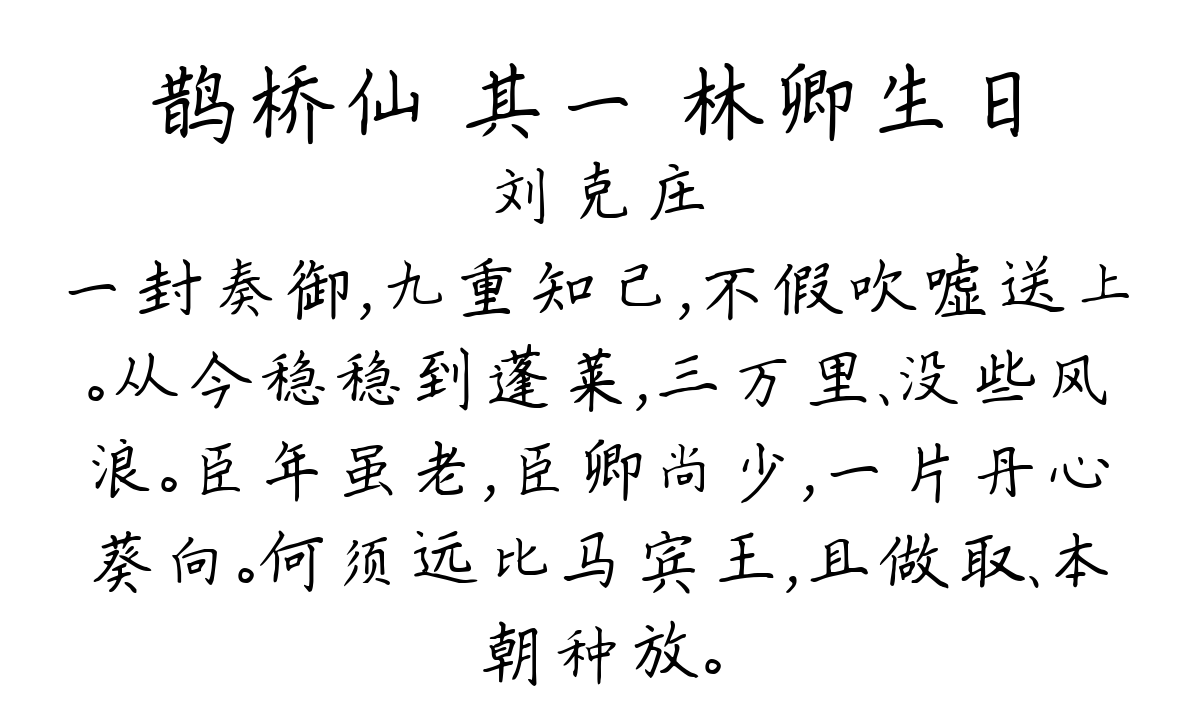 鹊桥仙 其一 林卿生日
刘克庄
一封奏御,九重知己,不假吹嘘送上
。从今稳稳到蓬莱,三万里、没些风
浪。臣年虽老,臣卿尚少,一片丹心
葵向。何须远比马宾王,且做取、本
朝种放。